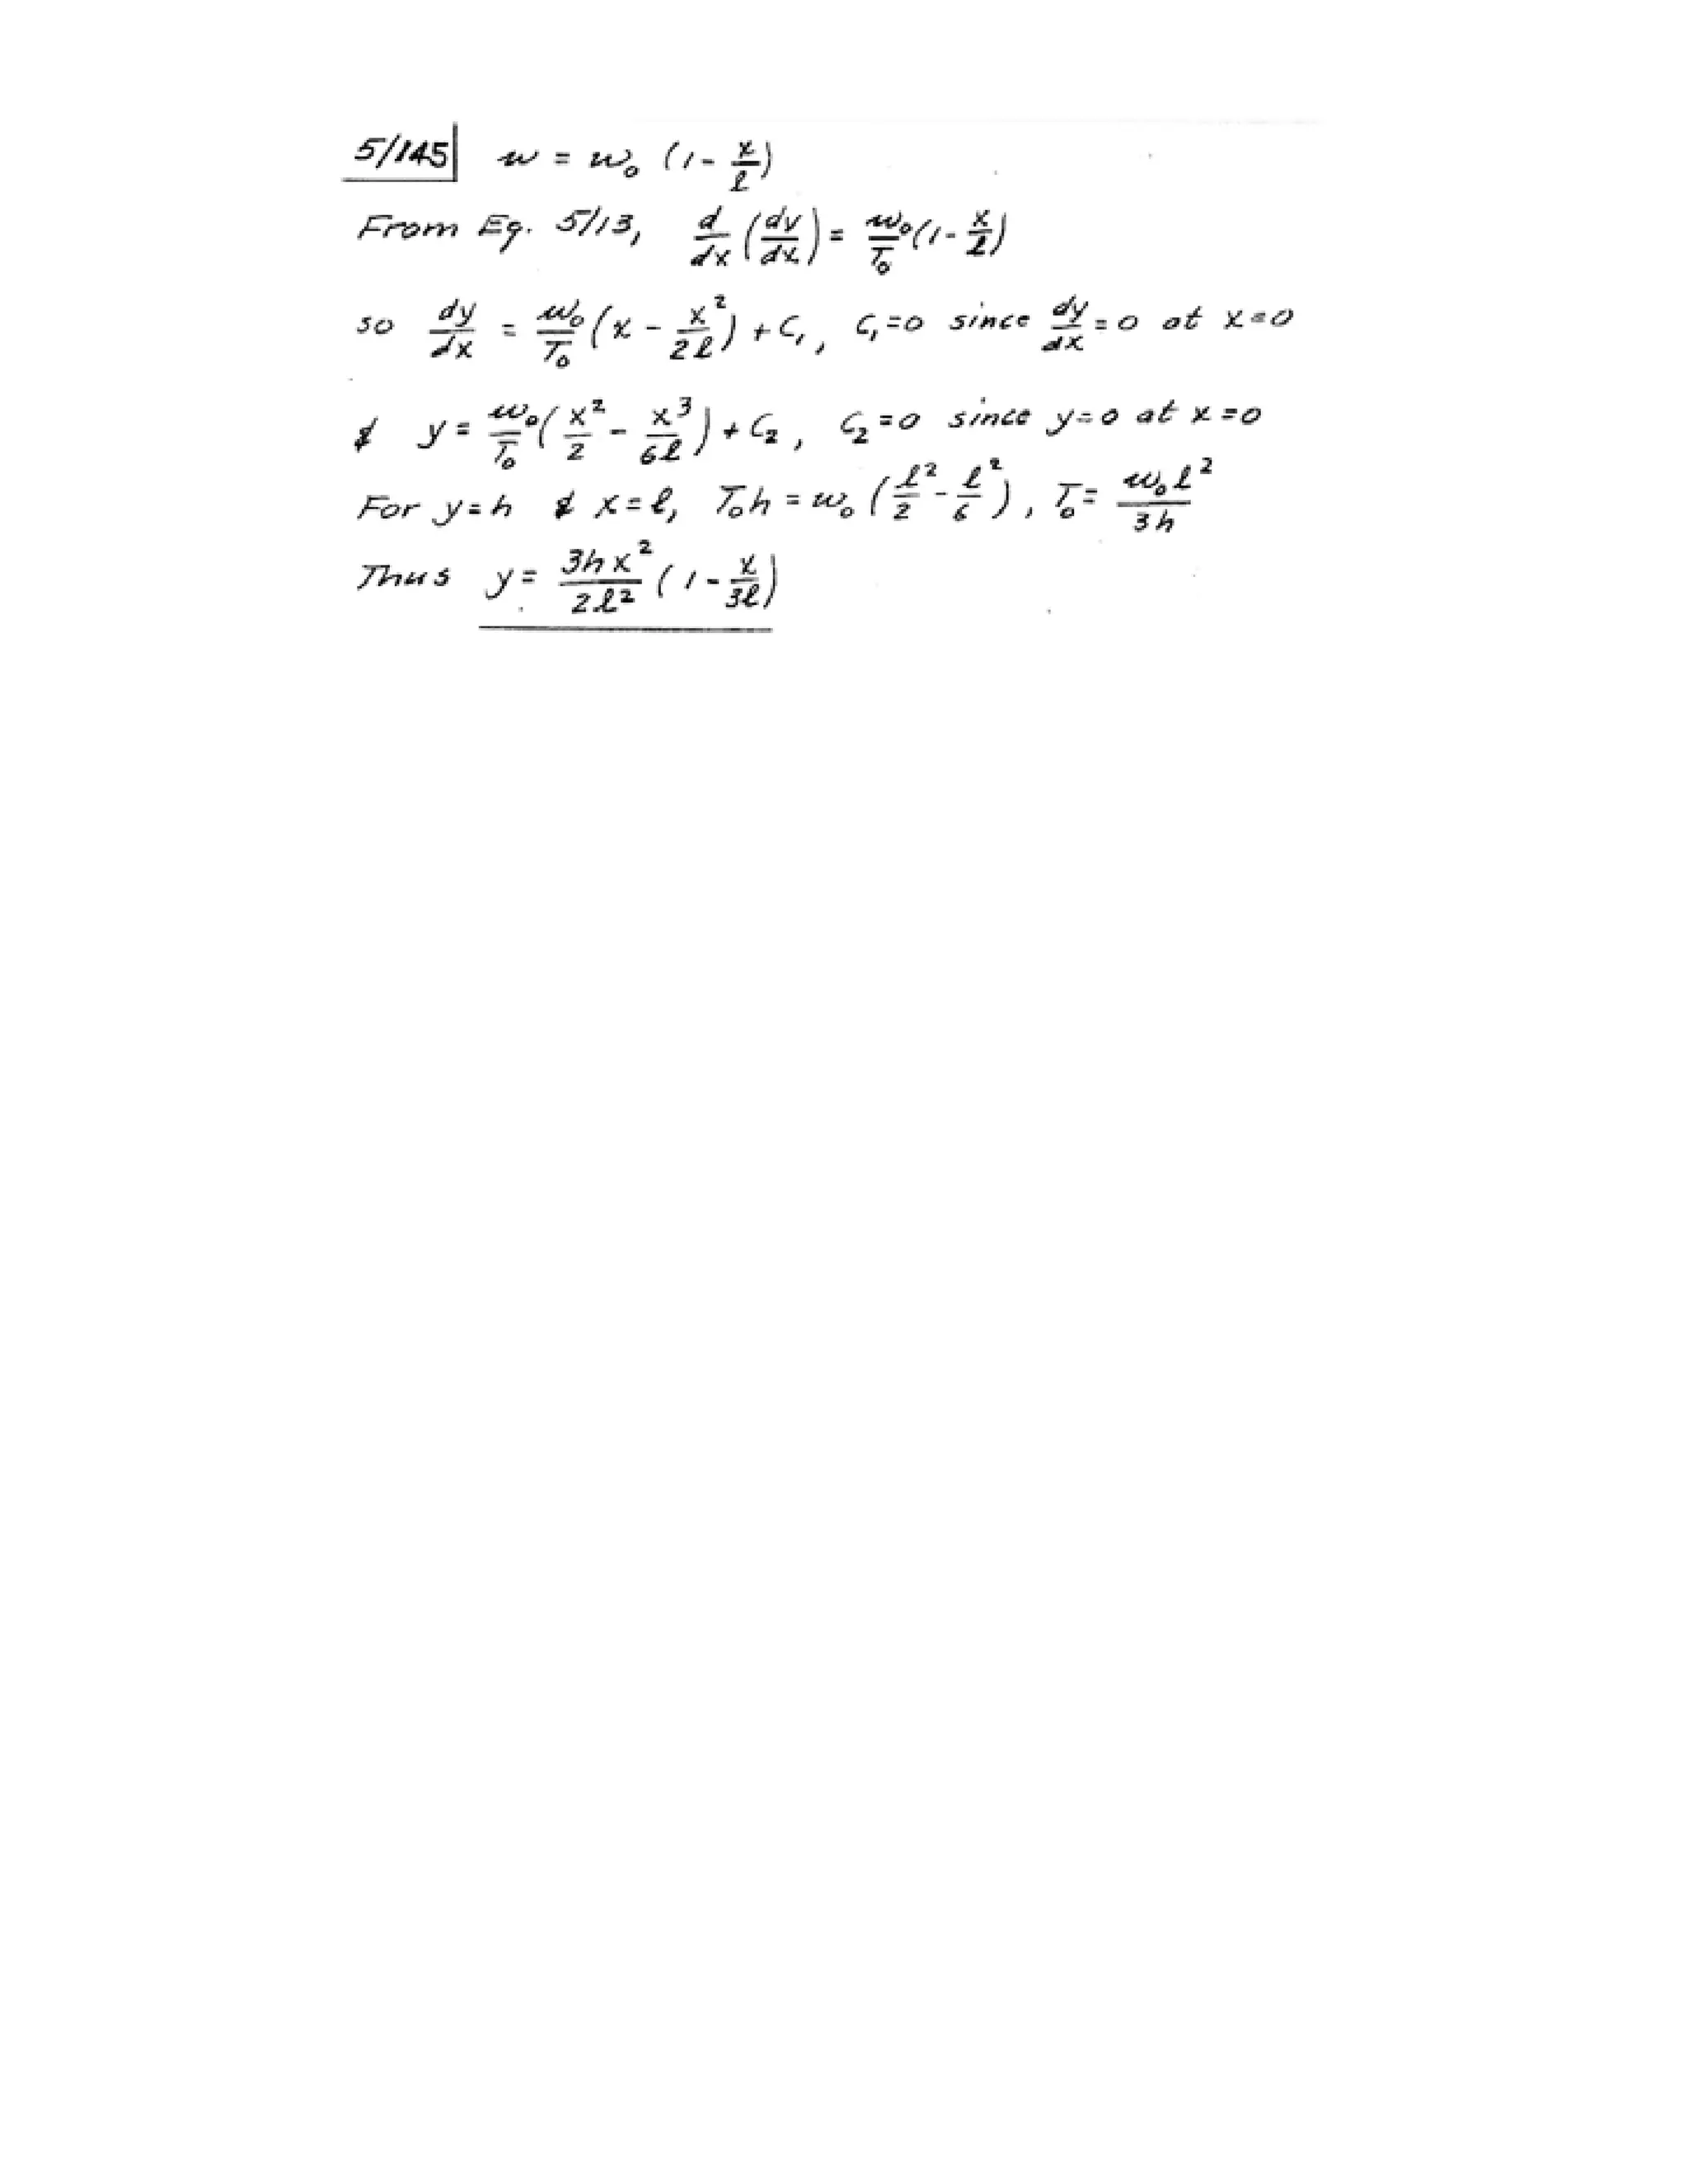 5/145 w = w₀ (1 - x/l)
From Eq. 5/13, d/dx (dy/dx) = w₀/T₀ (1 - x/l)
so dy/dx = w₀/T₀ (x - x²/2l) + C₁, C₁=0 since dy/dx = 0 at x=0
& y = w₀/T₀ (x²/2 - x³/6l) + C₂, C₂=0 since y=0 at x=0
For y=h & x=l, T₀h = w₀ (l²/2 - l²/6), T₀ = w₀l²/3h
Thus y = 3hx²/2l² (1 - x/3l)